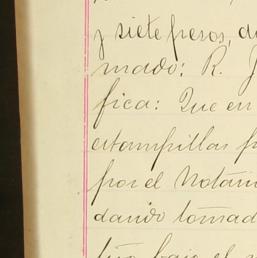 y siete pesos, d
mado: R. J
fica: Que en
estampillas p
por el Notari
dando tomad
bajo el